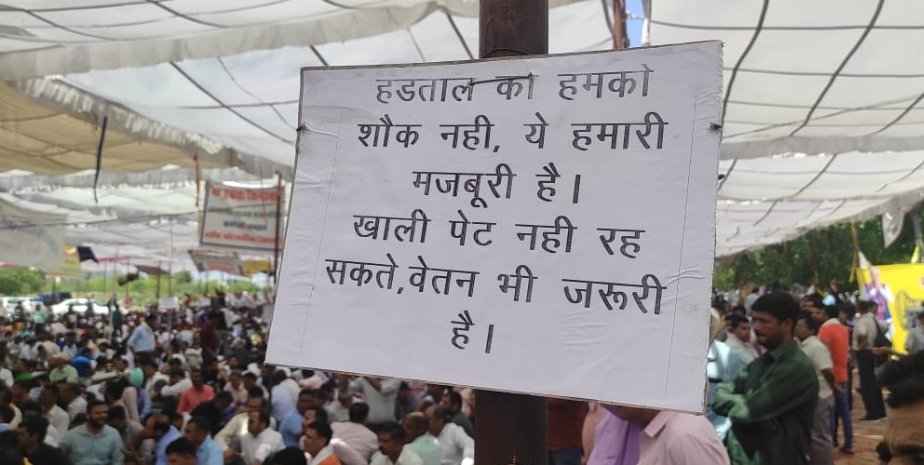 हडताल का हमको
शौक नही, ये हमारी
मजबूरी है।
खाली पेट नही रह
सकते,वेतन भी जरूरी
है।